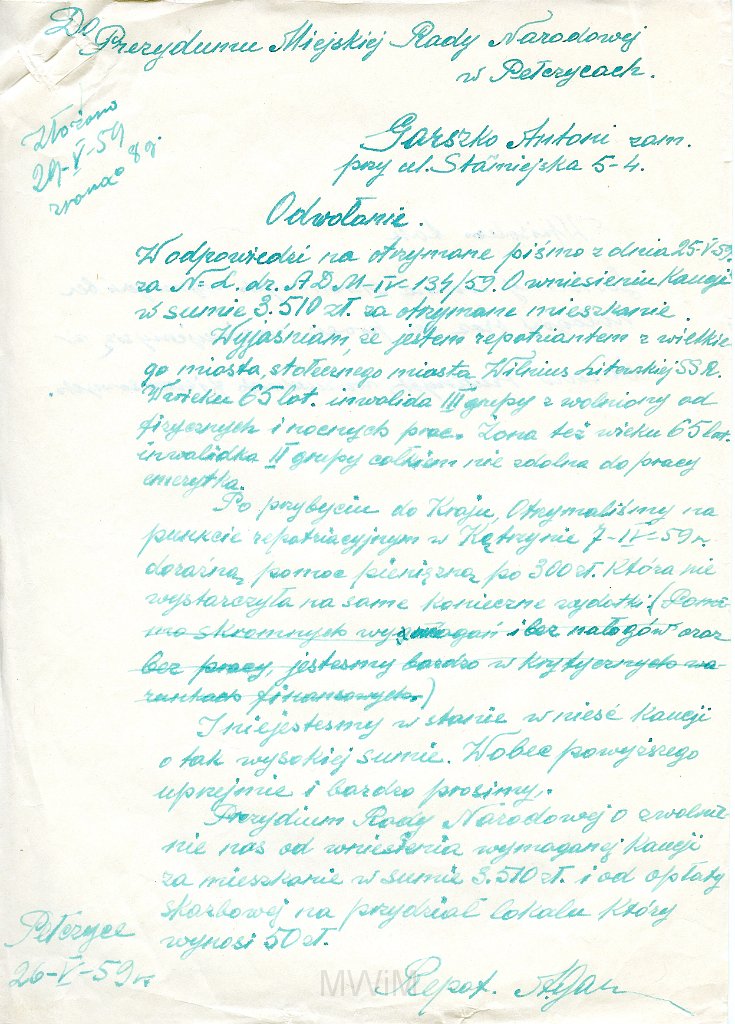 Do
Prezydumu Miejskiej Rady Narodowej
w Pełczycach.
Złożono
29-V-59
zrana o 8g.
Garszko Antoni zam.
przy ul. Stamiejska 5-4.
Odwołanie.
W odpowiedzi na otrzymane piśmo z dnia 25-V-59.
za N= L. dz. A D M-IV-134/59. O wniesieniu Kaucji
w sumie 3.510 zł. za otrzymane mieszkanie.
Wyjaśniam, że jestem repatriantem z wielkie
go miasta, stołecznego miasta Wilnius Litewskiej SSR.
W wieku 65 lat. inwalida III grupy zwolniony od
fizycznych i nocnych prac. Żona też wieku 65 lat.
inwalidka II grupy całkiem nie zdolna do pracy
emerytka.
Po przybyciu do Kraju, Otrzymaliśmy na
punkcie repatriacyjnym w Kętrzynie 7-IV-59 r.
doraźną pomoc pieniężną po 300 zł. Która nie
wystarczyła na same konieczne wydatki. (Pomi
mo skromnych wymagań i bez nałogów oraz
bez pracy, jesteśmy bardzo w krytycznych wa-
runkach finansowych.)
I niejesteśmy w stanie wnieść Kaucji
o tak wysokiej sumie. Wobec powyższego
uprzejmie i bardzo prosimy,.
Prezydium Rady Narodowej o zwolnie-
nie nas od wniesienia wymaganej Kaucji
za mieszkanie w sumie 3.510 zł. i od opłaty
skarbowej na przydział lokalu Który
wynosi 50 zł.
Pełczyce
26-V-59 r.
Repat. A. Gar
MWiM